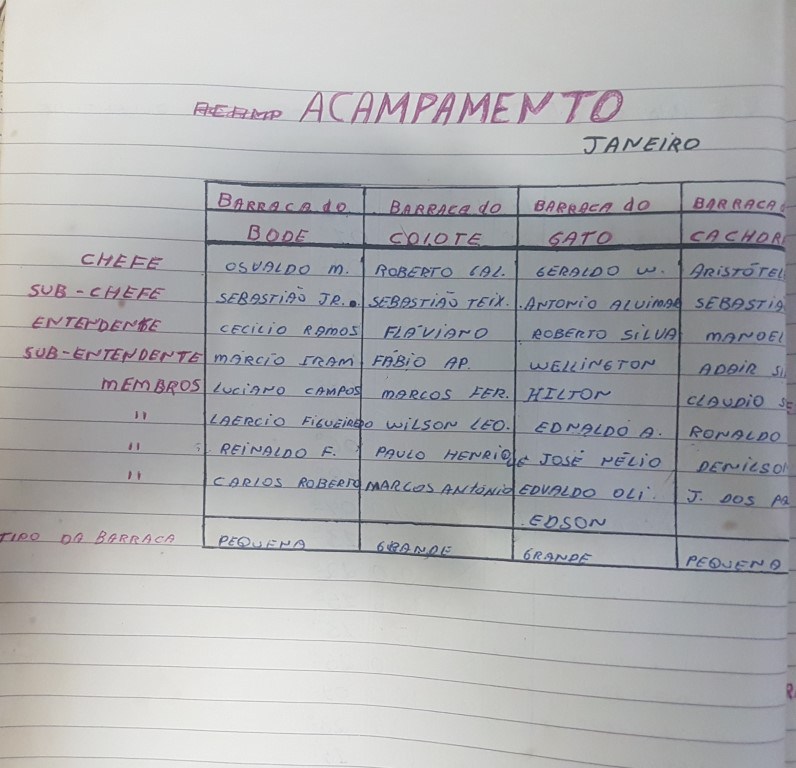 ACAMPAMENTO
JANEIRO
BARRACA do BARRACA do BARRACA do BARRACA
BODE COIOTE GATO CACHOR
CHEFE OSVALDO M. ROBERTO CAL. GERALDO W. ARISTÓTEL
SUB-CHEFE SEBASTIÃO JR. SEBASTIÃO TEIX. ANTONIO ALVIMAR SEBASTIÃ
ENTENDENTE CECILIO RAMOS FLÁVIANO ROBERTO SILVA MANOEL
SUB-ENTENDENTE MÁRCIO IRAM FÁBIO AP. WELLINGTON ADAIR SI
MEMBROS LUCIANO CAMPOS MARCOS FER. HILTON CLAUDIO SE
" LAERCIO FIGUEIREDO WILSON LEO. EDNALDO A. RONALDO
" REINALDO F. PAULO HENRIQUE JOSÉ HÉLIO DENILSON
" CARLOS ROBERTO MARCOS ANTÔNIO EDVALDO OLI. J. DOS PA
EDSON
TIPO DA BARRACA PEQUENA GRANDE GRANDE PEQUENA